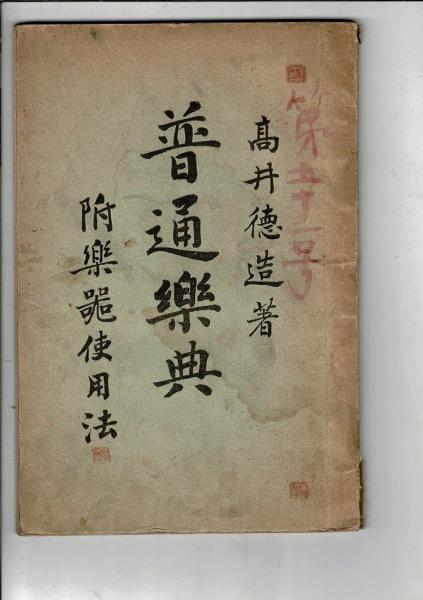 第五十一号
高井德造著
普通樂典
附樂器使用法